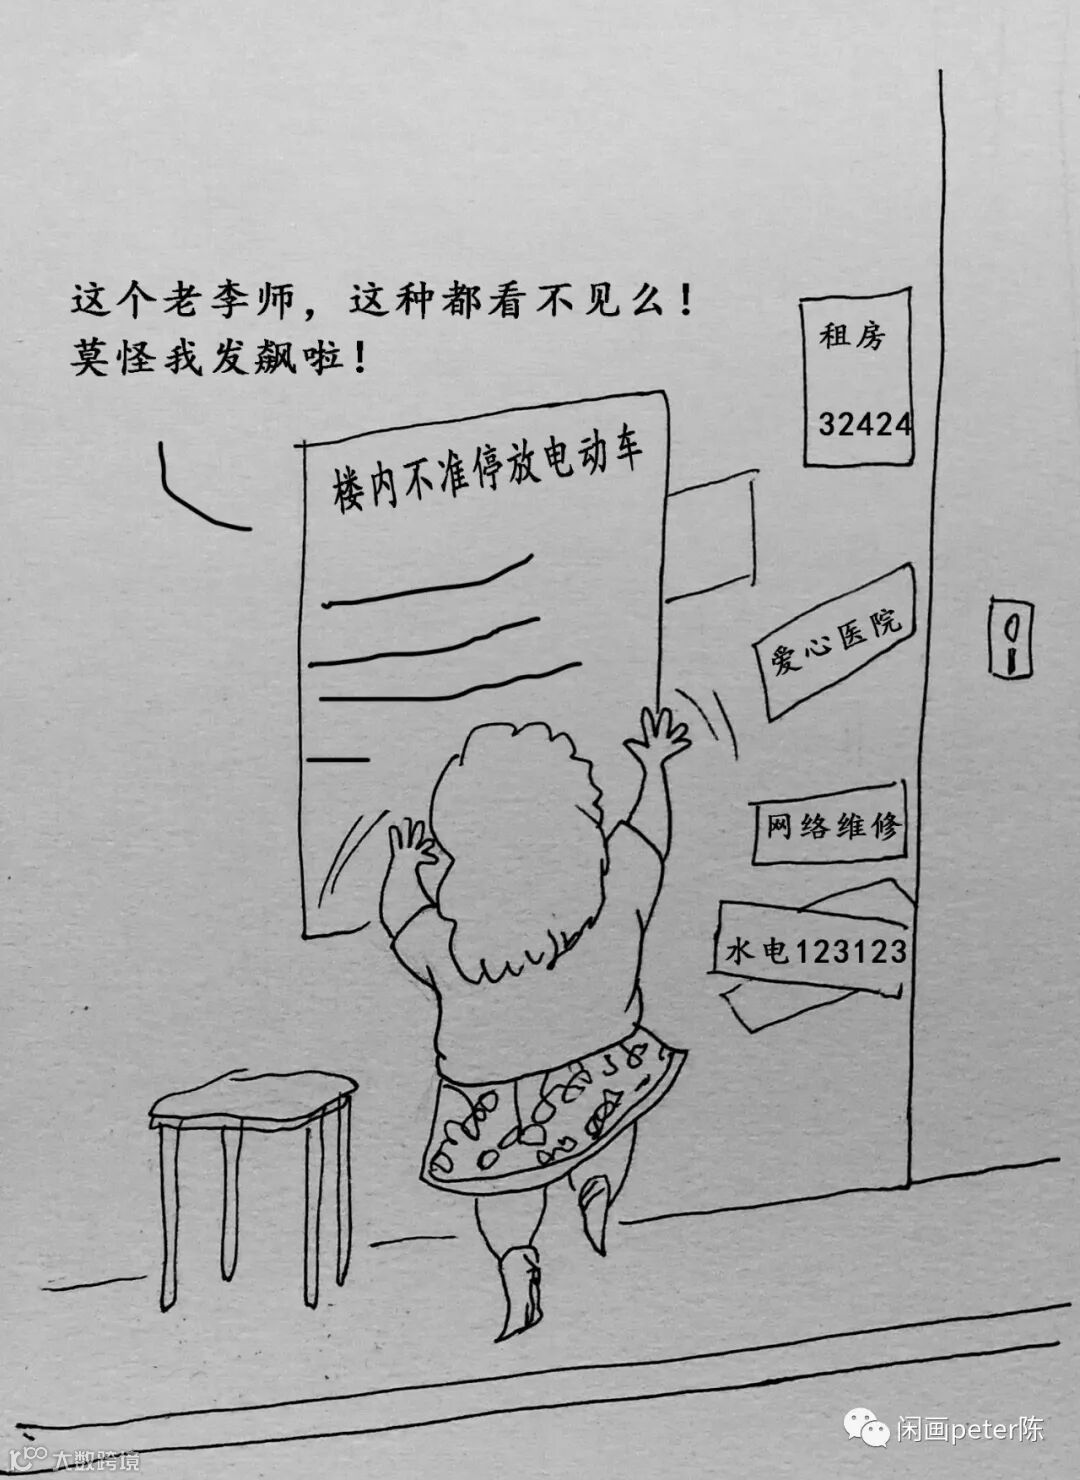 这个老李师，这种都看不见么！
莫怪我发飙啦！
楼内不准停放电动车
租房
32424
爱心医院
网络维修
水电123123
闲画peter陈
大数跨境